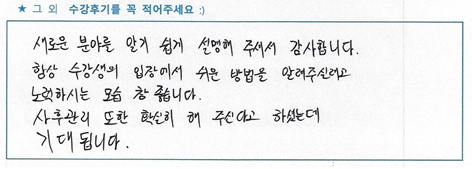 ★ 그 외 수강후기를 꼭 적어주세요 :)
새로운 분야를 알기 쉽게 설명해 주셔서 감사합니다.
항상 수강생의 입장에서 쉬운 방법을 알려주시려고
노력하시는 모습 참 좋습니다.
사후관리 또한 확실히 해 주신다고 하셨는데
기대됩니다.